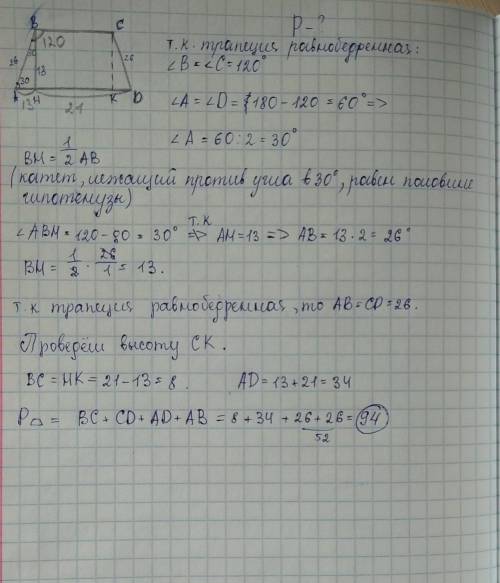 P-?
B
C
120
26
13
26
30
A
H
K
D
13
21
т.к. трапеция равнобедренная:
∠B=∠C=120°
∠A=∠D= 180-120=60° =>
∠A=60:2=30°
BH= 1/2 AB
(катет, лежащий против угла в 30°, равен половине
гипотенузы)
∠ABH=120-90=30° => т.к AH=13 => AB=13·2=26°
BH= 1/2 · 26/1 = 13.
т.к трапеция равнобедренная, то AB=CD=26.
Проведём высоту CK.
BC=HK=21-13=8. AD=13+21=34
P = BC+CD+AD+AB=8+34+26+26=94
52